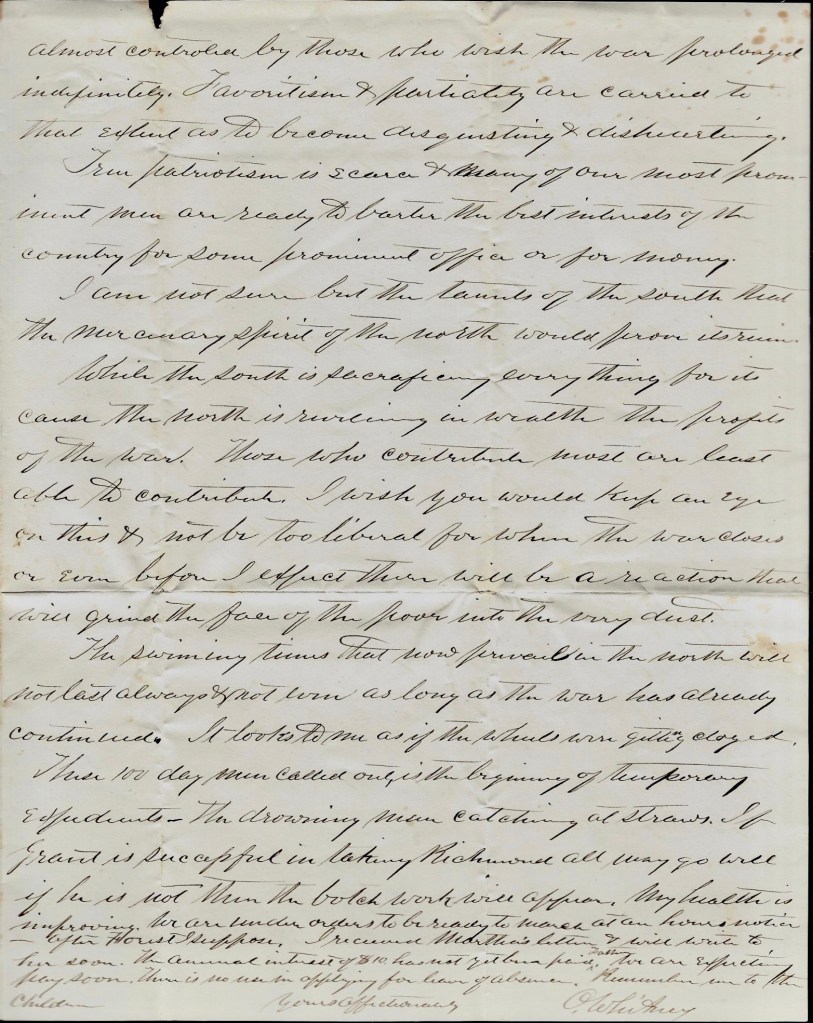 almost controled by those who wish the war prolonged
indefinitely. Favoritism & partiality are carried to
that extent as to become disgusting & dishearting.
True patriotism is scarce & many of our most prom-
inent men are ready to barter the best interests of the
country for some prominent office or for money.
I am not sure but the taunts of the south that
the mercenary spirit of the north would prove its ruin.
While the south is sacraficing everything for its
cause the north is in wealth the profits
of the war. Those who contribute most are least
able to contribute. I wish you would keep an eye
on this & not be too liberal for when the war closes
or even before I expect there will be a reaction that
will grind the face of the poor into the very dust.
The swiming times that now prevail in the north will
not last always & not even as long as the war has already
continued. It looks to me as if the wheels were gitting cloged.
These 100 day men called out, is the beginning of temporary
expedients - the drowning man catching at straws. If
Grant is successful in taking Richmond all may go well
if he is not then the botch work will appear. My health is
improving. We are under orders to be ready to march at an hours notice
- after Forest I suppose. I received Martha's letter & will write to
her soon. The annual interest of $10. has not yet been paid, We are expecting
pay soon. There is no use in applying for leave of absence. Remember me to the
children Yours affectionately O. Whitney